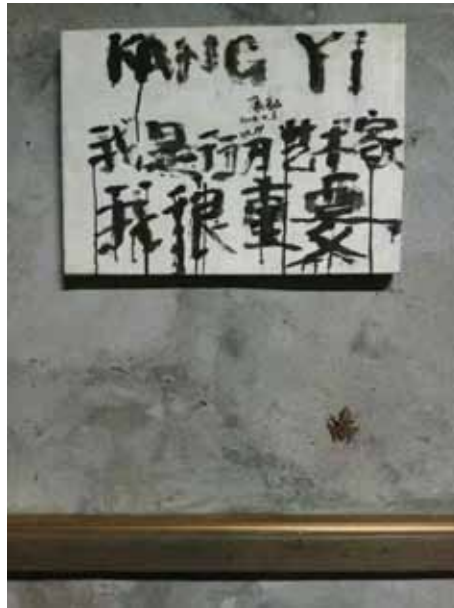 KANG YI
我是行为艺术家
我很重要